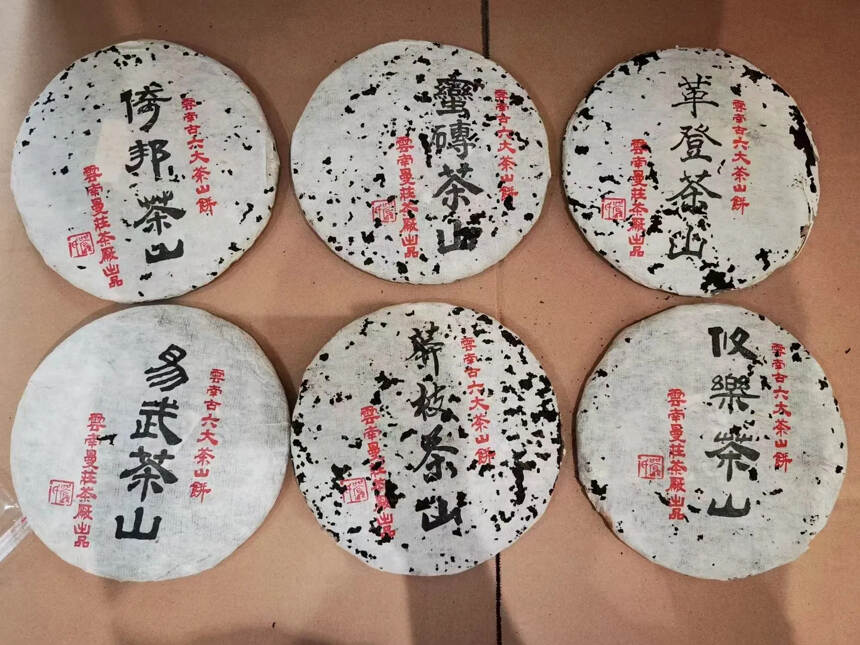 雲南古六大茶山餅
倚邦茶山
雲南曼莊茶厰出品
雲南古六大茶山餅
蠻磚茶山
雲南曼莊茶厰出品
雲南古六大茶山餅
革登茶山
雲南曼莊茶厰出品
雲南古六大茶山餅
易武茶山
雲南曼莊茶厰出品
雲南古六大茶山餅
莽枝茶山
雲南曼茶厰出品
雲南古六大茶山餅
攸樂茶山
雲南曼莊茶厰出品